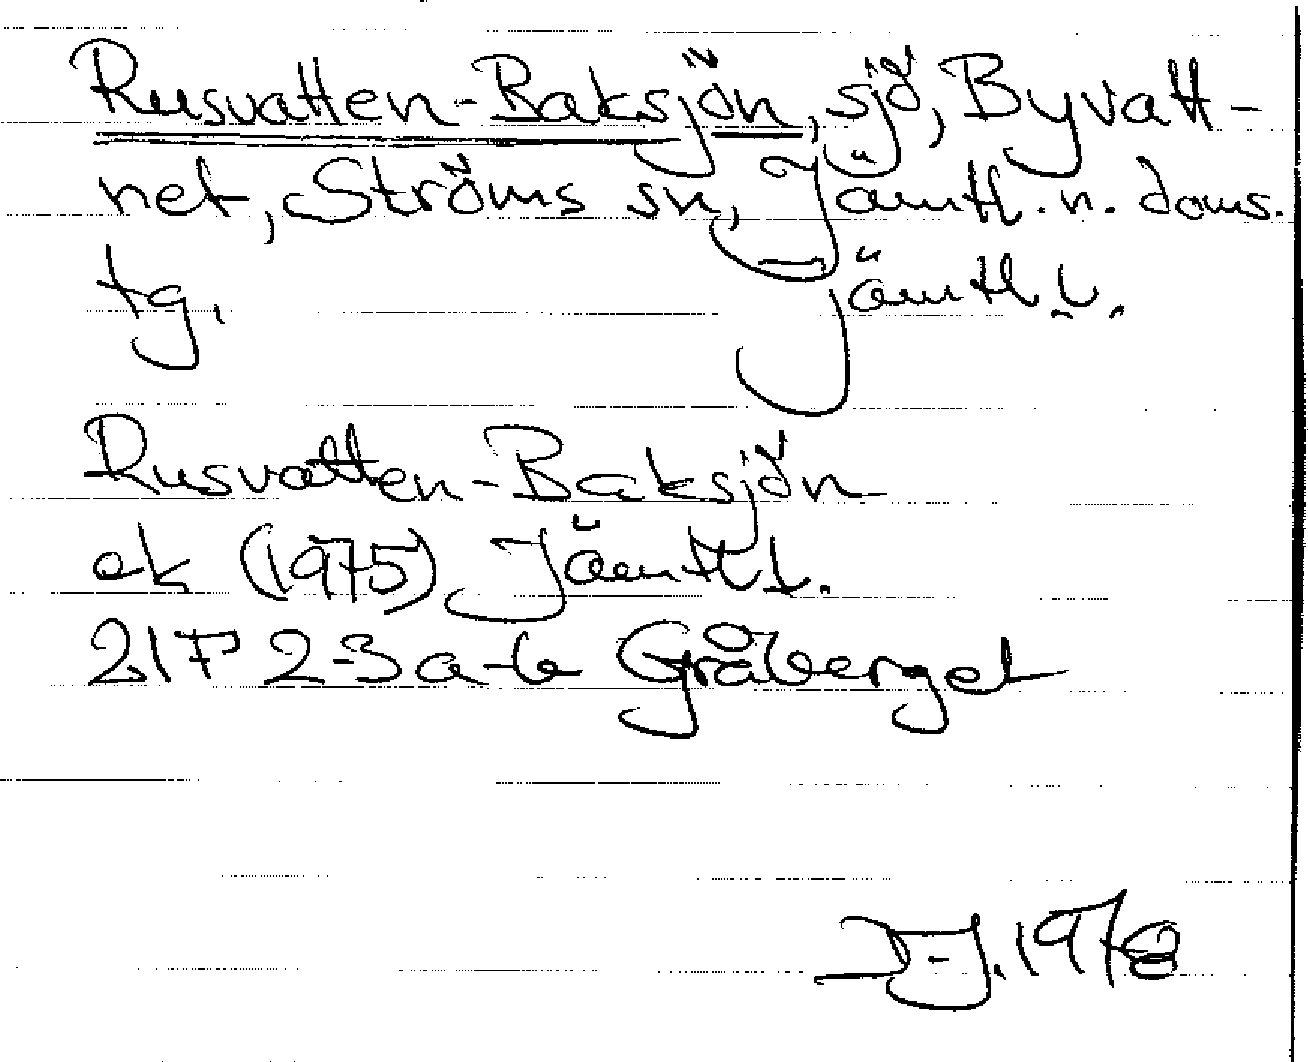 Rusvatten-Baksjön, sjö, Byvatt-
net, Ströms sn, Jämtl. n. doms.
tg. Jämtl l.
Rusvatten-Baksjön
ek (1975) Jämtl l.
21F 2-3a-b Gråberget
D-J. 1978